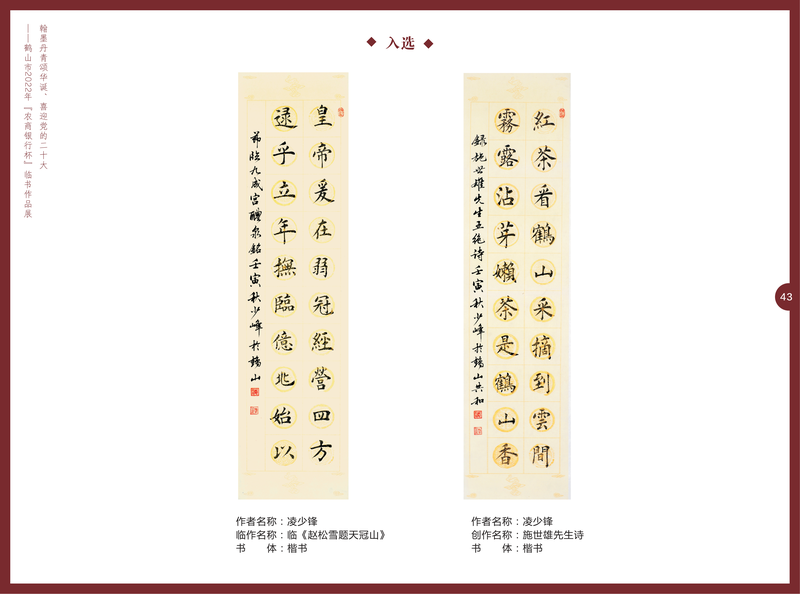 翰墨丹青颂华诞,喜迎党的二十大
——鹤山市2022年『农商银行杯』临书作品展
入选
皇帝爰在弱冠經營四方
逯乎立年撫臨億兆始以
茆临九成宫醴泉銘壬寅秋少峰於鶴山
紅茶看鶴山采摘到雲間
霧露沾芽嫩茶是鶴山香
録施世雄先生五绝诗壬寅秋少峰於鶴山共和
作者名称：凌少锋
临作名称：临《赵松雪题天冠山》
书　　体：楷书
作者名称：凌少锋
创作名称：施世雄先生诗
书　　体：楷书
43